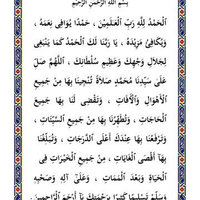 بِسْمِ اللَّهِ الرَّحْمَنِ الرَّحِيْمِ
اَلْحَمْدُ لِلَّهِ رَبِّ الْعَالَمِيْنَ ، حَمْدًا يُوَافِي نِعَمَهُ
وَيُكَافِئُ مَزِيْدَهُ ، يَا رَبَّنَا لَكَ الْحَمْدُ كَمَا يَنْبَغِي
لِجَلَالِ وَجْهِكَ وَعَظِيْمِ سُلْطَانِكَ ، اَللَّهُمَّ صَلِّ
عَلَى سَيِّدِنَا مُحَمَّدٍ صَلَاةً تُنْجِيْنَا بِهَا مِنْ جَمِيْعِ
الْأَهْوَالِ وَالْآفَاتِ ، وَتَقْضِى لَنَا بِهَا جَمِيْعَ
الْحَاجَاتِ ، وَتُطَهِّرُنَا بِهَا مِنْ جَمِيْعِ السَّيِّئَاتِ ،
وَتَرْفَعُنَا بِهَا عِنْدَكَ أَعْلَى الدَّرَجَاتِ ، وَتُبَلِّغُنَا
بِهَا أَقْصَى الْغَايَاتِ ، مِنْ جَمِيْعِ الْخَيْرَاتِ فِى
الْحَيَاةِ وَبَعْدَ الْمَمَاتِ ، وَعَلَى آلِهِ وَصَحْبِهِ
وَسَلِّمْ تَسْلِيْمًا كَثِيْرًا بِرَحْمَتِكَ يَا أَرْحَمَ الرَّاحِمِيْنَ .